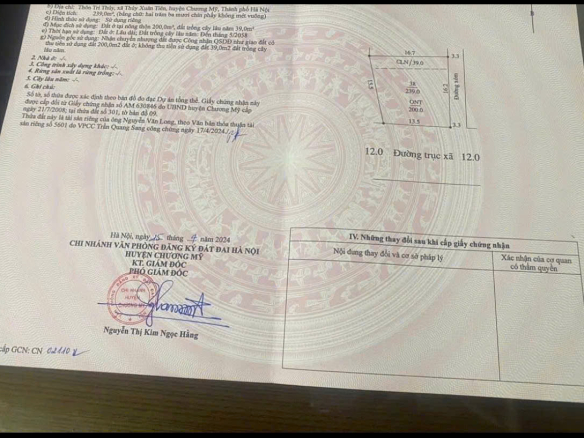 b) Địa chỉ: Thôn Trí Thủy, xã Thủy Xuân Tiên, huyện Chương Mỹ, Thành phố Hà Nội
c) Diện tích: 239,0m², (bằng chữ: hai trăm ba mươi chín phẩy không mét vuông)
d) Hình thức sử dụng: Sử dụng riêng
đ) Mục đích sử dụng: Đất ở tại nông thôn 200,0m², đất trồng cây lâu năm 39,0m²
e) Thời hạn sử dụng: Đất ở: Lâu dài; Đất trồng cây lâu năm: Đến tháng 5/2058
g) Nguồn gốc sử dụng: Nhận chuyển nhượng đất được Công nhận QSDĐ như giao đất có
thu tiền sử dụng đất 200,0m2 đất ở; không thu tiền sử dụng đất 39,0m2 đất trồng cây
lâu năm.
2. Nhà ở: -/-.
3. Công trình xây dựng khác: -/-.
4. Rừng sản xuất là rừng trồng: -/-.
5. Cây lâu năm: -/-.
6. Ghi chú:
Số tờ, số thửa được xác định theo bản đồ đo đạc Dự án tổng thể. Giấy chứng nhận này
được cấp đổi từ Giấy chứng nhận số AM 630846 do UBND huyện Chương Mỹ cấp
ngày 21/7/2008; tại thửa đất số 301, tờ bản đồ 09.
Thửa đất này là tài sản riêng của ông Nguyễn Văn Long, theo Văn bản thỏa thuận tài
sản riêng số 5601 do VPCC Trần Quang Sang công chứng ngày 17/4/2024./.
16.7
3.5
CLN / 39.0
13.5
38
239.0
16.2
Đường xóm
ONT
200.0
13.5
3.5
12.0 Đường trục xã 12.0
Hà Nội, ngày 15 tháng 7 năm 2024
CHI NHÁNH VĂN PHÒNG ĐĂNG KÝ ĐẤT ĐAI HÀ NỘI
HUYỆN CHƯƠNG MỸ
KT. GIÁM ĐỐC
PHÓ GIÁM ĐỐC
CHI NHÁNH
HUYỆN
CHƯƠNG MỸ
Nguyễn Thị Kim Ngọc Hằng
cấp GCN: CN 02110
IV. Những thay đổi sau khi cấp giấy chứng nhận
Nội dung thay đổi và cơ sở pháp lý
Xác nhận của cơ quan
có thẩm quyền